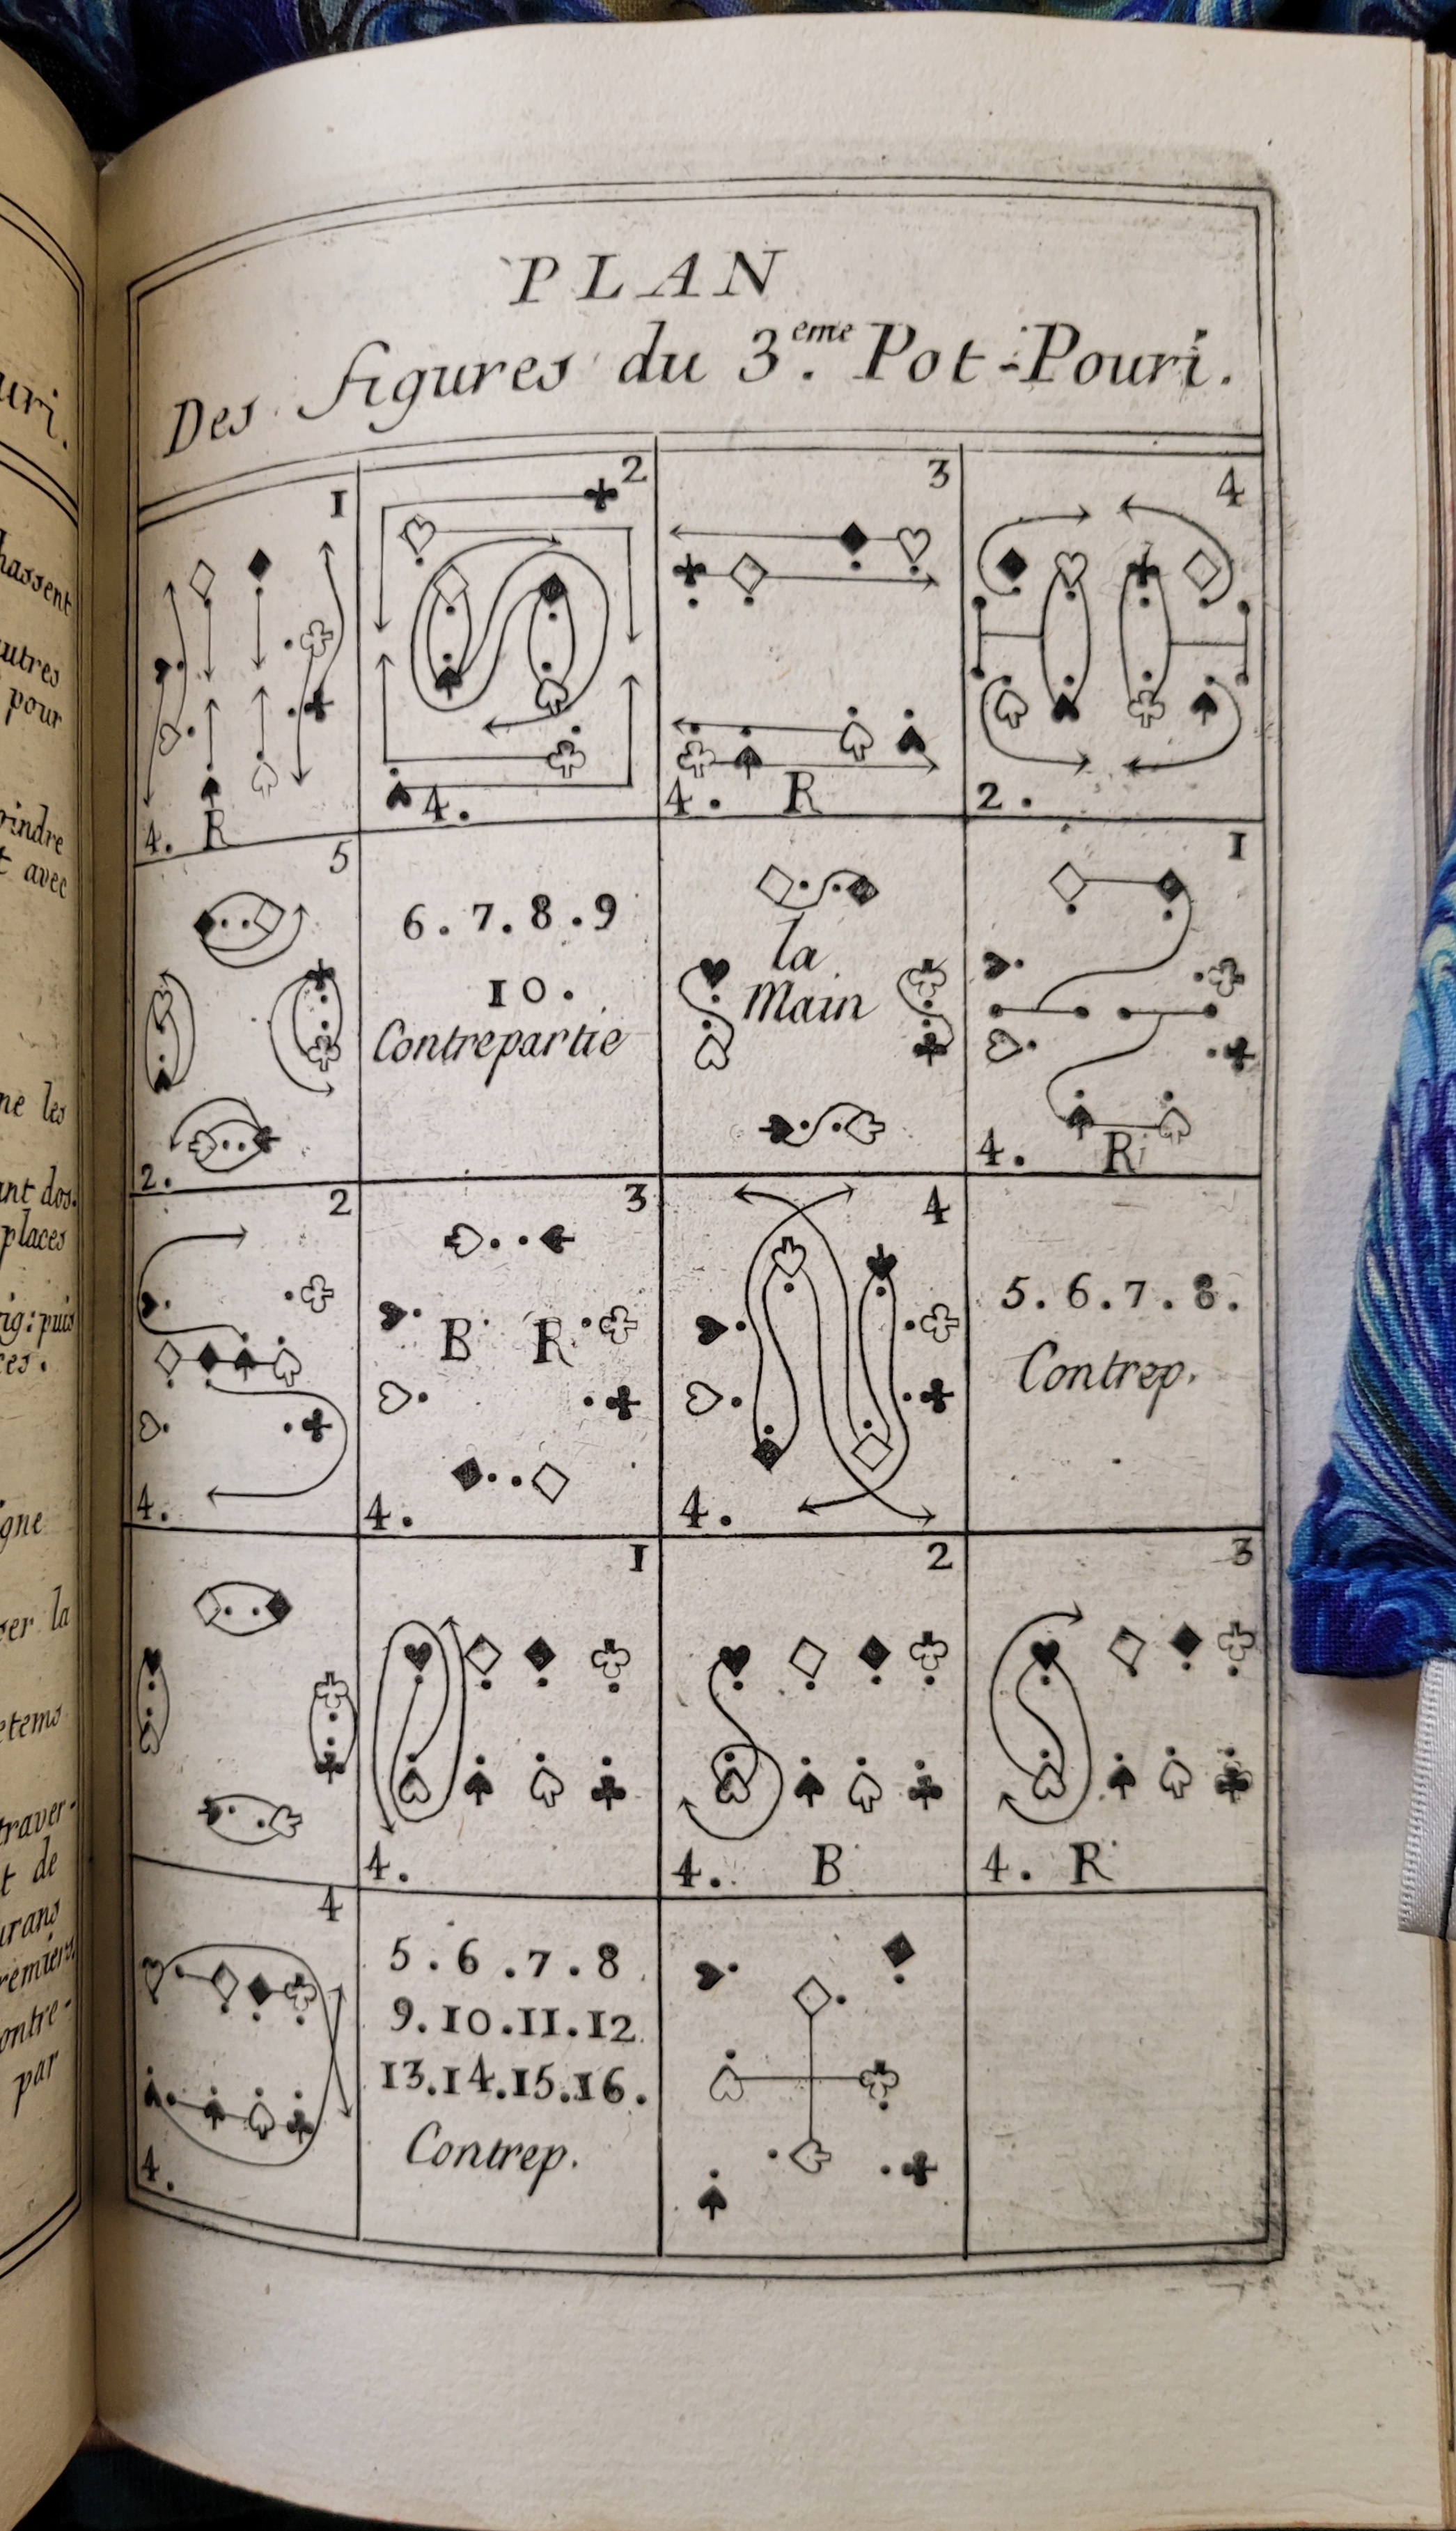 uri.
hassent
autres
pour
rindre
t avec
ne les
ant dos.
places
rig: puis
ces.
igne
ser la
etems
traver-
t de
urans
remiers
ontre-
par
PLAN
Des figures du 3.eme Pot-Pouri.
1
4. R
2
4.
3
4. R
4
2.
5
2.
6.7.8.9
10.
Contrepartie
la
Main
1
4. R
2
4.
3
B R
4.
4
4.
5.6.7.8.
Contrep.
1
4.
2
4. B
3
4. R
4
4.
5.6.7.8
9.10.11.12
13.14.15.16.
Contrep.